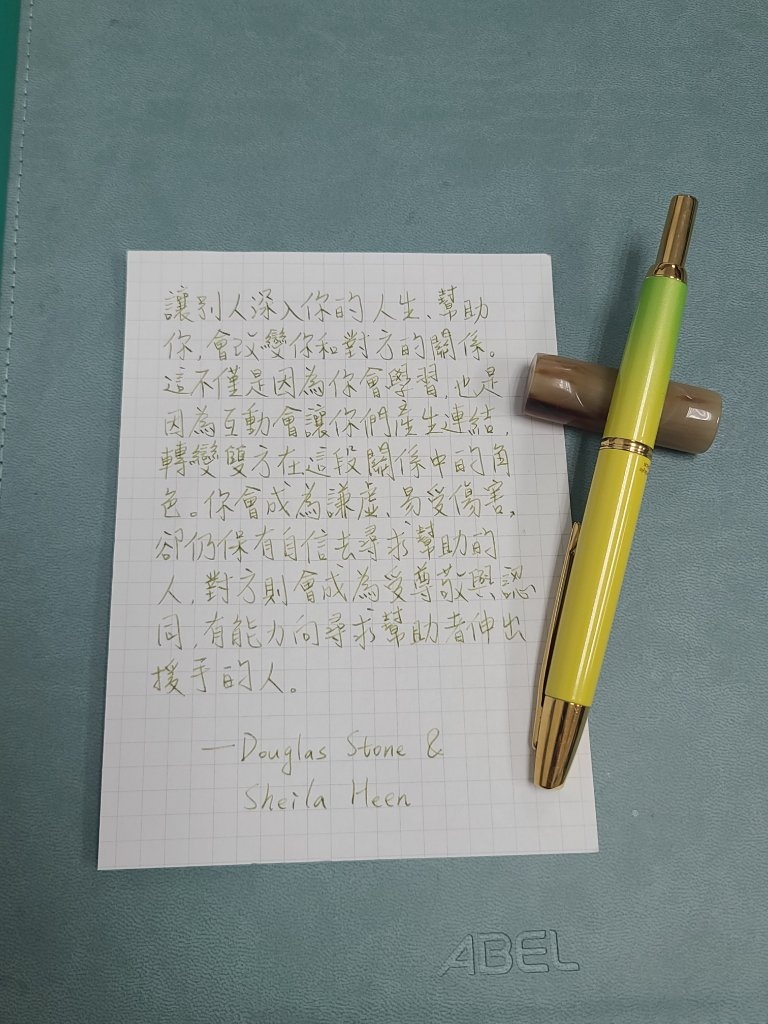 讓別人深入你的人生、幫助
你，會改變你和對方的關係。
這不僅是因為你會學習，也是
因為互動會讓你們產生連結，
轉變雙方在這段關係中的角
色。你會成為謙虛、易受傷害，
卻仍保有自信去尋求幫助的
人，對方則會成為受尊敬與認
同，有能力向尋求幫助者伸出
援手的人。
—Douglas Stone &
Sheila Heen
ABEL